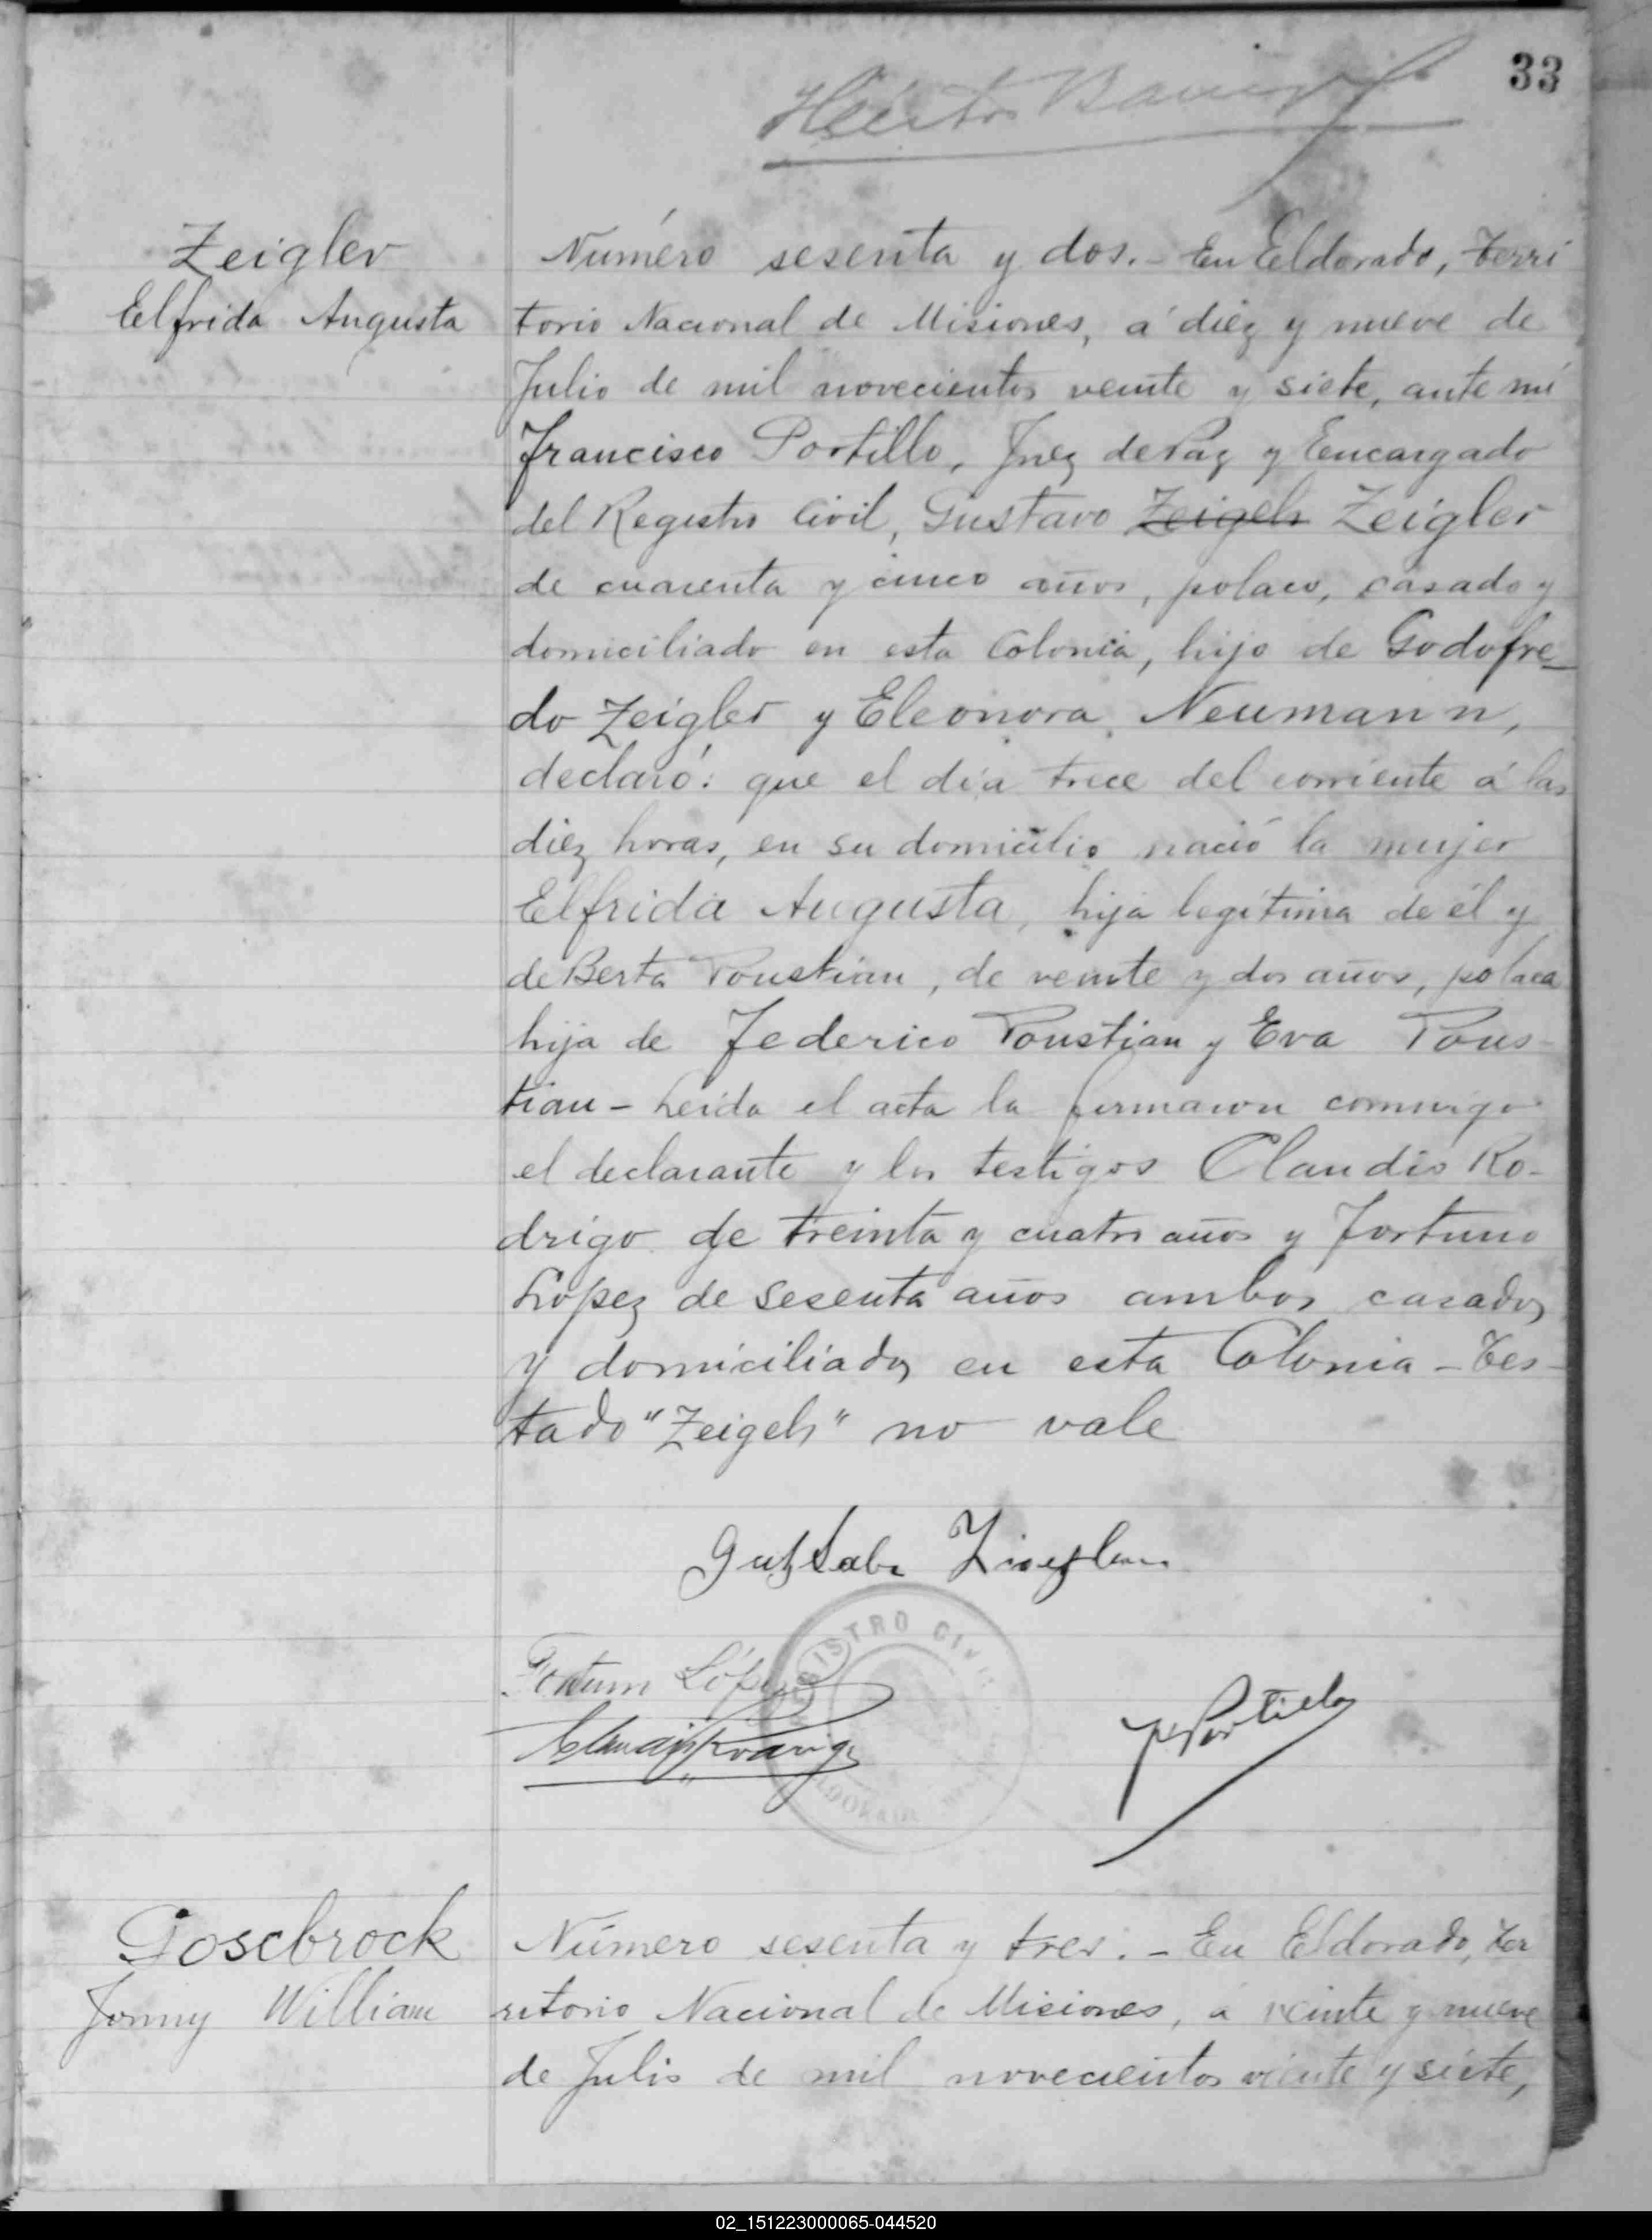 33
Zeigler
Elfrida Augusta
Número sesenta y dos.- En Eldorado, Terri
torio Nacional de Misiones, á diez y nueve de
Julio de mil novecientos veinte y siete, ante mí
Francisco Portillo, Juez de Paz y Encargado
del Registro Civil, Gustavo Zeigels Zeigler
de cuarenta y cinco años, polaco, casado y
domiciliado en esta Colonia, hijo de Godofre-
do Zeigler y Eleonora Neumann,
declaró: que el día trece del corriente á las
diez horas, en su domicilio nació la mujer
Elfrida Augusta, hija legítima de él y
de Berta Poustian, de veinte y dos años, polaca
hija de Federico Poustian y Eva Pous-
tian - Leida el acta la firmaron conmigo
el declarante y los testigos Claudio Ro-
drigo de treinta y cuatro años y Fortuno
López de sesenta años ambos casados
y domiciliados en esta Colonia - Tes-
tado "Zeigels" no vale
Fortun López
F Portillo
REGISTRO CIVIL
ELDORADO
Gosebrock
Jonny William
Número sesenta y tres. - En Eldorado, Ter
ritorio Nacional de Misiones, á veinte y nueve
de Julio de mil novecientos veinte y siete,
02_151223000065-044520